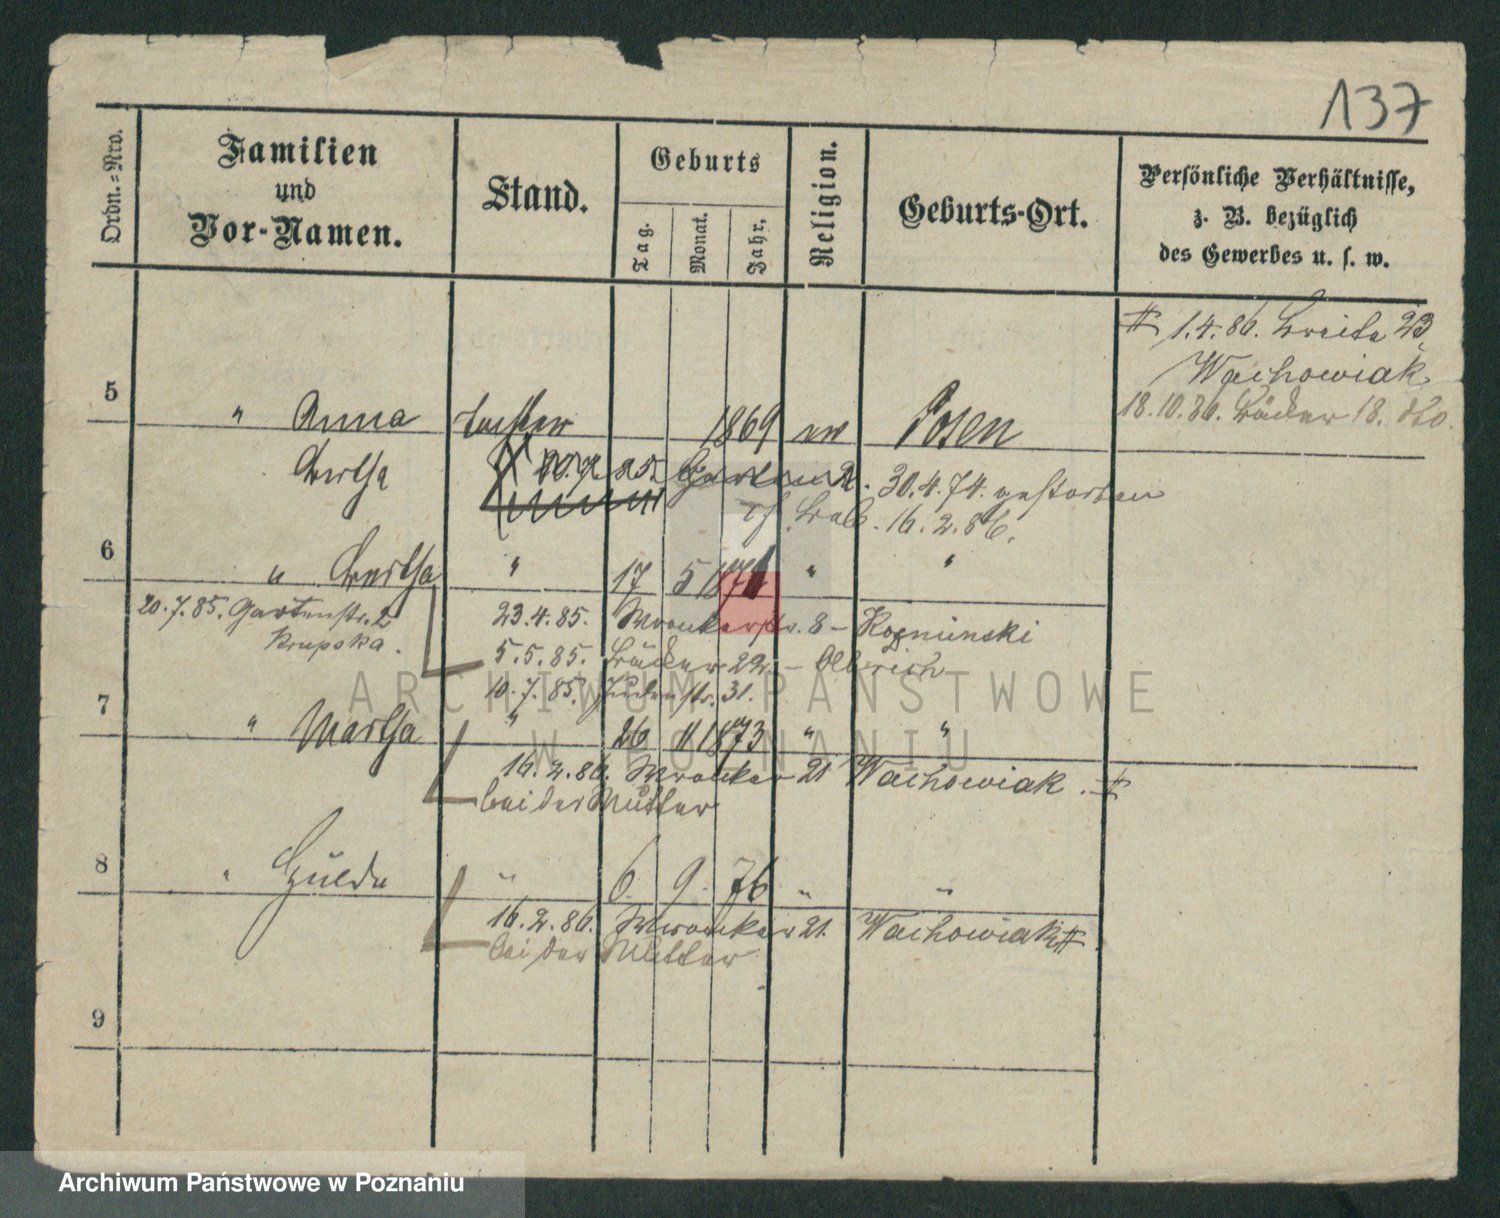 137
Ordn.=Nro.
Familien
und
Vor-Namen.
Stand.
Geburts
Tag.
Monat.
Jahr.
Religion.
Geburts-Ort.
Persönliche Verhältnisse,
z. B. bezüglich
des Gewerbes u. s. w.
# 1.4.86. Breite 23,
Wachowiak
18.10.86. Bäcker 18.
5 " Anna Tochter 1869 ev Posen
Bertha Garten 2. 30.4.74. gestorben
16.2.86.
6 " Bertha " 17 5 1874 " "
20.7.85. Gartenstr. 2
Krupska.
23.4.85. Wronkerstr. 8 – Kozminski
5.5.85. Bäcker 22. – Olbrich
10.7.85. Judenstr. 31.
7 " Martha " 26 11 1873 " "
16.2.86. Wronker 21 Wachowiak. #
bei der Mutter
8 " Hulda " 6. 9. 76 " "
16.2.86. Wronker 21. Wachowiak #
bei der Mutter
9
ARCHIWUM PAŃSTWOWE
W POZNANIU
Archiwum Państwowe w Poznaniu